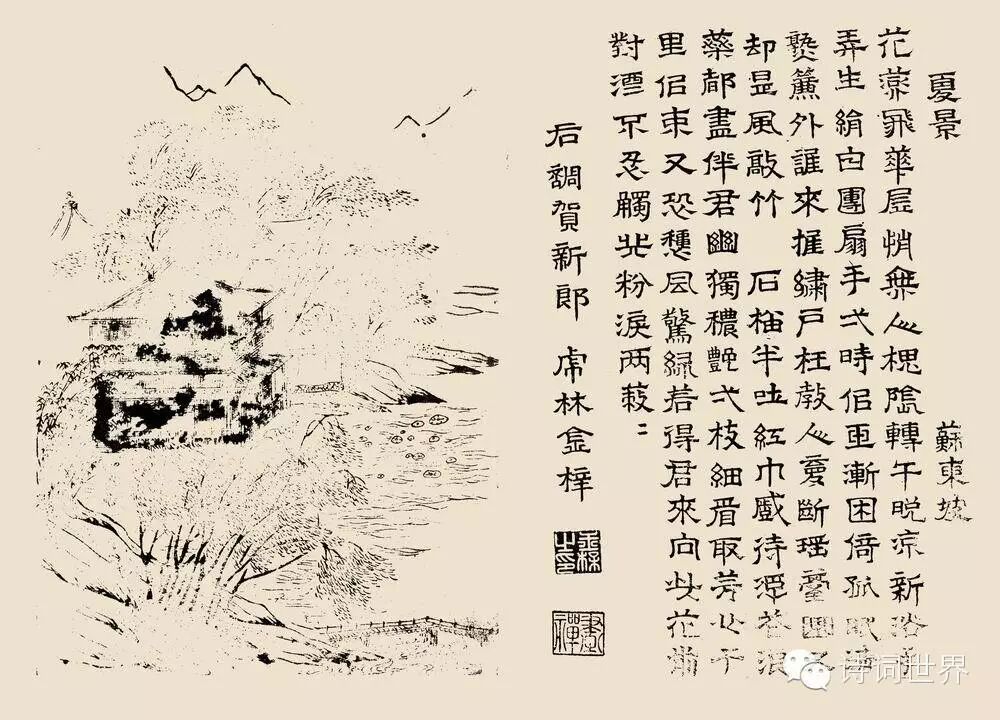 夏景 蘇東坡
花蘂飛華屋悄無人槐陰轉午晚凉新浴手
弄生綃白團扇手弌時侣玉漸困倚孤眠清
熟簾外誰來推繡戶枉教人夢斷瑶臺曲又
却是風敲竹 石榴半吐紅巾蹙待浮花浪
蘂都盡伴君幽獨穠艷弌枝細看取芳心千
里侣束又恐穐風驚緑若得君來向此花前
對酒不忍觸此粉淚两蔌〻
右調賀新郎 虎林金梓
诗词世界